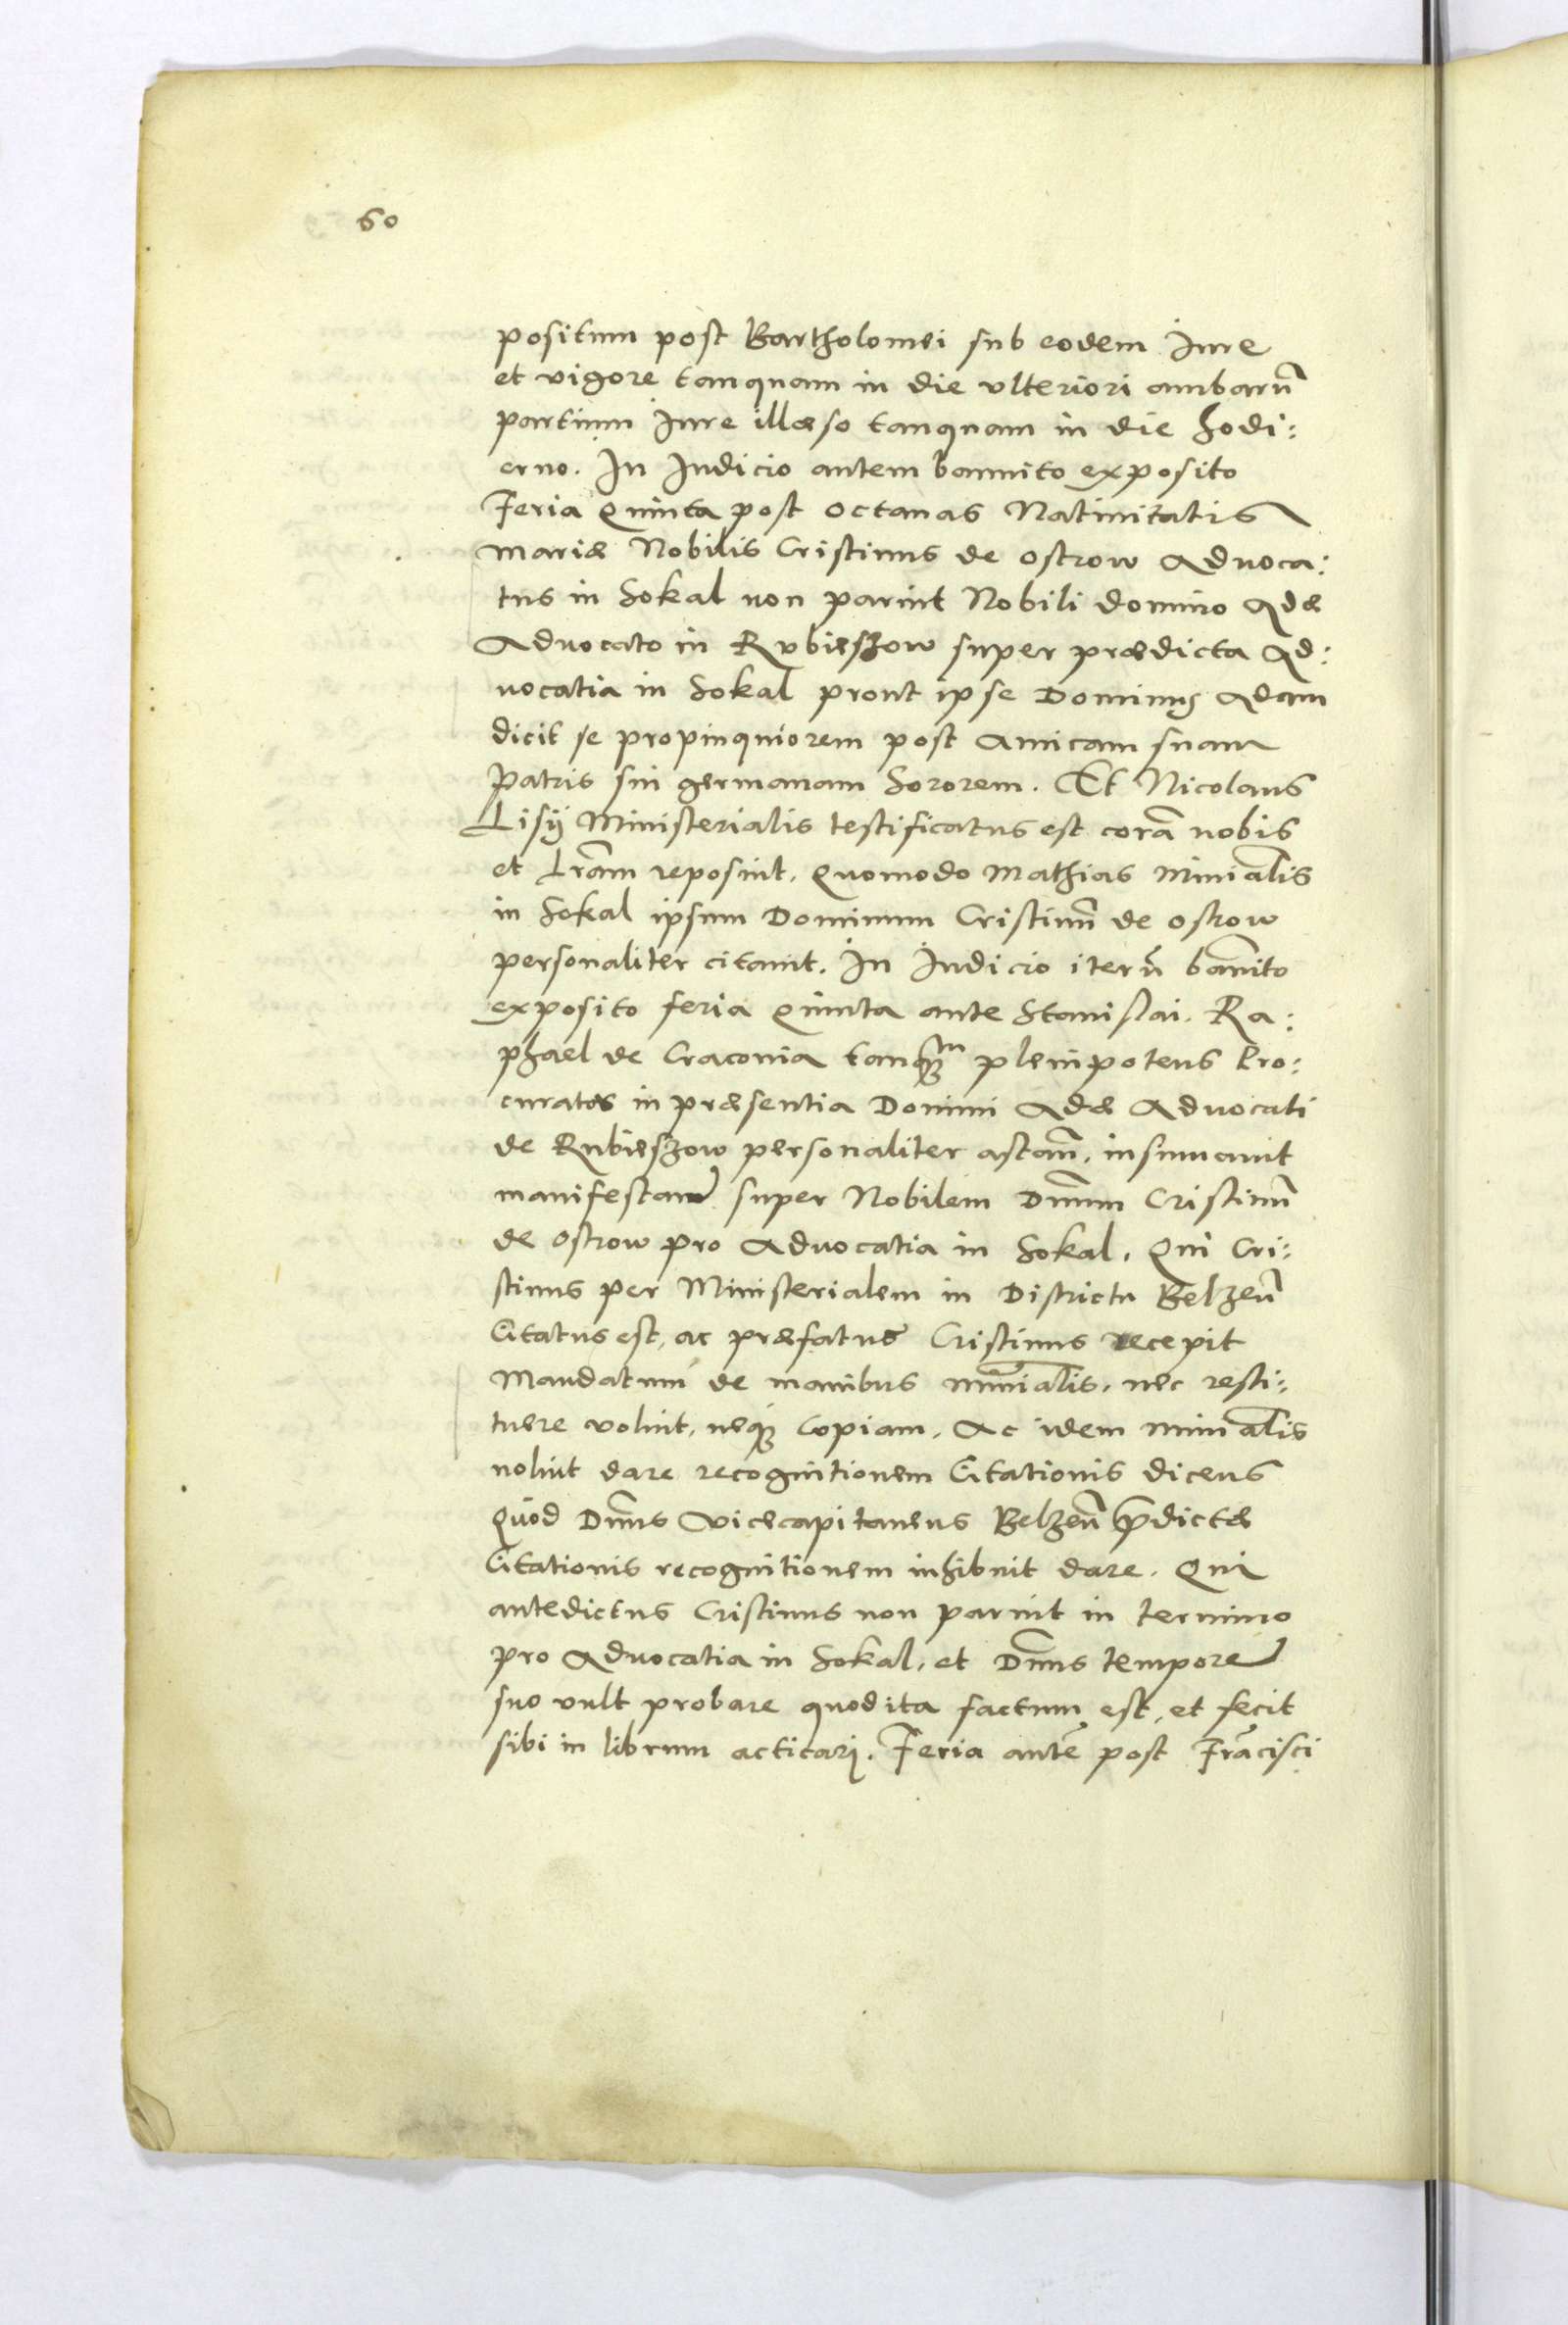 60
positum post Bartholomei sub eodem Iure
et vigore tanquam in die vlteriori ambarū
partium Iure illæso tanquam in die hodi:
erno. In Iudicio autem bannito exposito
Feria Quinta post octauas Natiuitatis
Mariæ Nobilis Cristinus de ostrow Aduoca:
tus in Sokal non paruit Nobili domino Adæ
Aduocato in Rubieszow super prædicta Ad:
uocatia in Sokal prout ipse Dominus Adam
dicit se propinquiorem post Amicam suam
Patris sui germanam Sororem. Et Nicolaus
Lisÿ Ministerialis testificatus est corā nobis
et l̄ram reposuit. Quomodo Mathias Mini̅alis
in Sokal ipsum Dominum Cristinū de ostrow
personaliter citauit. In Iudicio iterū ban̄ito
exposito feria Quinta ante Stanislai. Ra:
phael de Cracouia tanqꝫm plenipotens Pro:
curator in præsentia Domini Adæ Aduocati
de Rubieszow personaliter astan̄. insinuauit
manifestand̄ super Nobilem Dn̄um Cristinū
de ostrow pro Aduocatia in Sokal. Qui Cri:
stinus per Ministerialem in Districtu Belzen̄
Citatus est, ac præfatus Cristinus recepit
Mandatum de manibus Min̄ialis. nec resti:
tuere voluit, neqꝫ Copiam. Ac idem Min̄ialis
noluit dare recognitionem Citationis dicens
Quod Dn̄us Vicecapitaneus Belzen̄ p̄dictæ
Citationis recognitionem inhibuit dare. Qui
antedictus Cristinus non paruit in termino
pro Aduocatia in Sokal, et Dn̄us tempore
suo vult probare quod ita factum est, et fecit
sibi in librum acticari. Feria autē post Frācisci